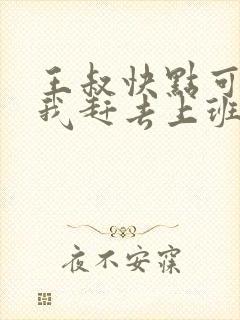 王叔快點可
我赶去上班
夜不安寐